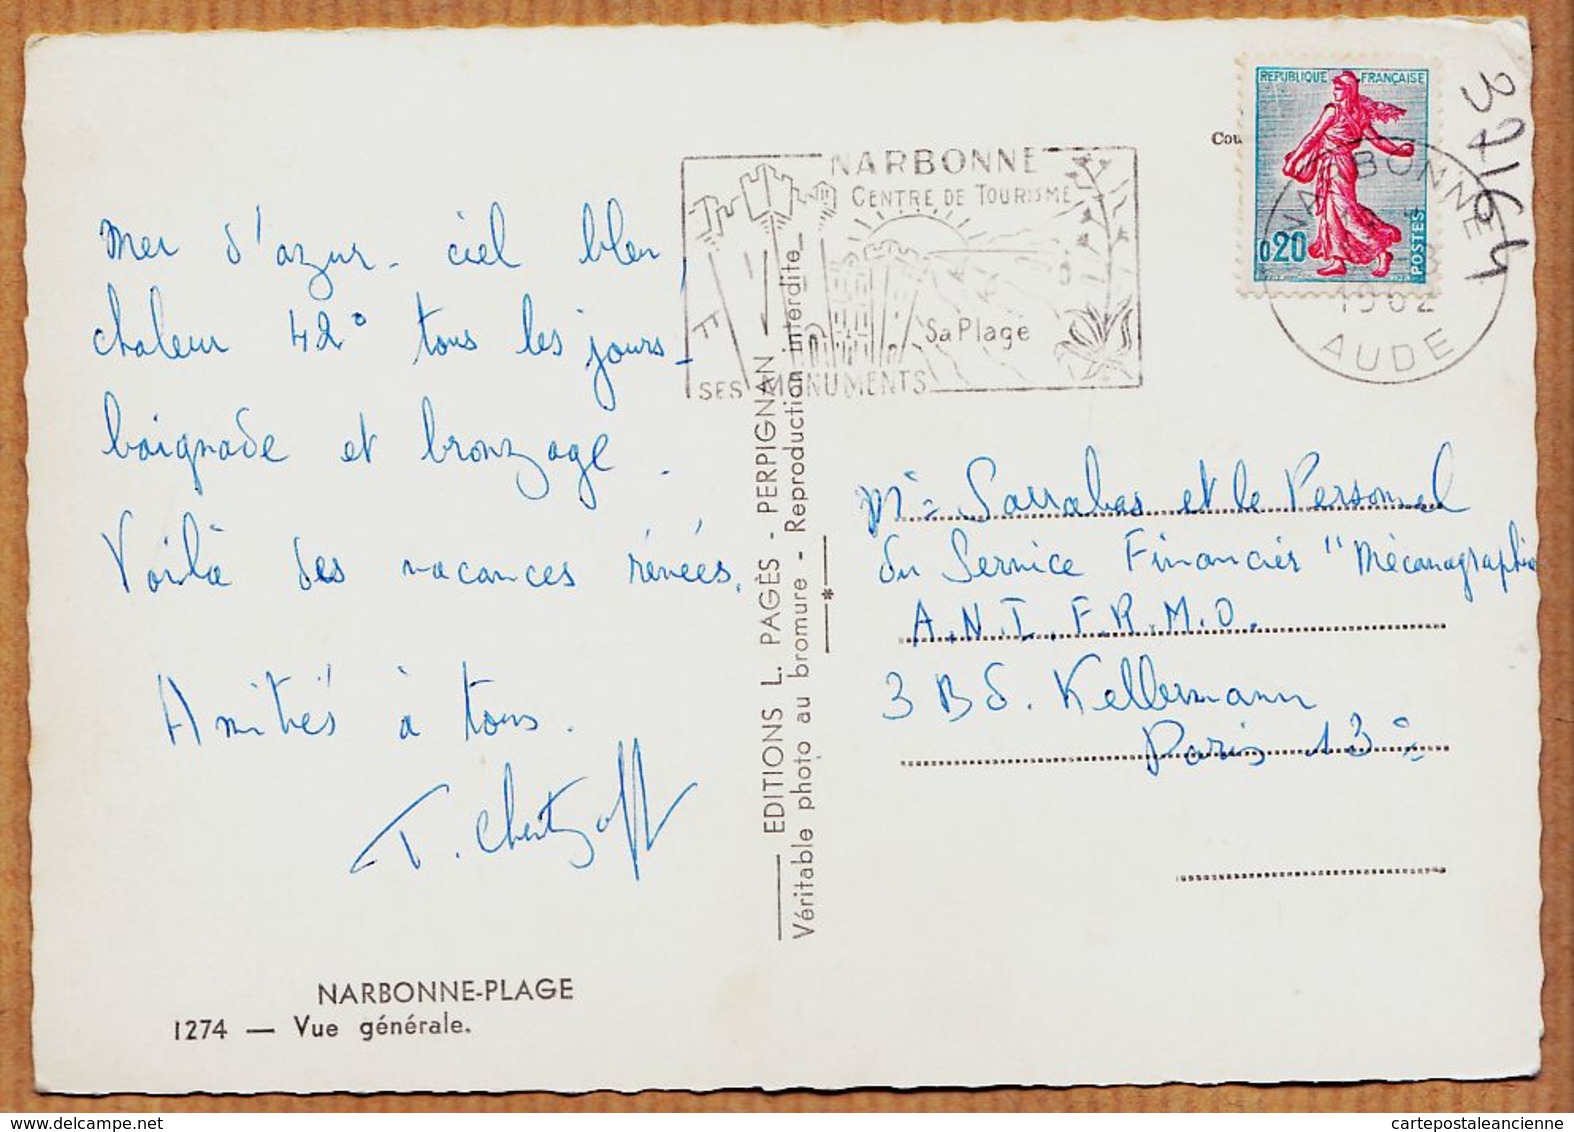 mer d'azur - ciel bleu,
chaleur 42° tous les jours -
baignade et bronzage.
Voilà des vacances rêvées.
Amitiés à tous.
NARBONNE-PLAGE
1274 — Vue générale.
EDITIONS L. PAGÈS - PERPIGNAN
Véritable photo au bromure - Reproduction interdite
NARBONNE
CENTRE DE TOURISME
Sa Plage
SES MONUMENTS
REPUBLIQUE FRANÇAISE
0,20
POSTES
NARBONNE
1962
AUDE
Cou
37164
Mme Sarrabas et le Personnel
du Service Financier "Mécanographie
A.N.I.F.R.M.O.
3 Bd. Kellermann
Paris 13e
cartepostaleancienne